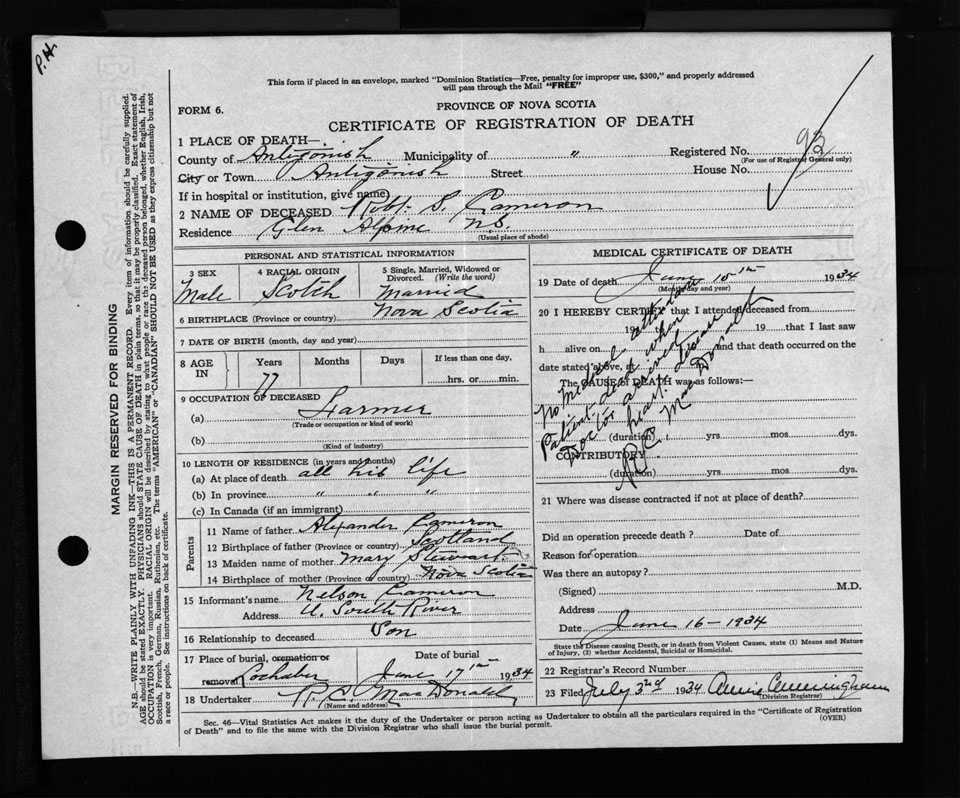 P.H.
This form if placed in an envelope, marked "Dominion Statistics—Free, penalty for improper use, $300," and properly addressed
will pass through the Mail "FREE"
FORM 6.
PROVINCE OF NOVA SCOTIA
CERTIFICATE OF REGISTRATION OF DEATH
1 PLACE OF DEATH—
County of Antigonish Municipality of " Registered No. 93
(For use of Registrar General only)
City or Town Antigonish Street House No.
If in hospital or institution, give name)
2 NAME OF DECEASED Robt. S. Cameron
Residence Glen Alpine N.S.
(Usual place of abode)
PERSONAL AND STATISTICAL INFORMATION
3 SEX 4 RACIAL ORIGIN 5 Single, Married, Widowed or Divorced. (Write the word)
Male Scotch Married
6 BIRTHPLACE (Province or country) Nova Scotia
7 DATE OF BIRTH (month, day and year)
8 AGE IN Years Months Days If less than one day,
77 hrs. or min.
9 OCCUPATION OF DECEASED
(a) Farmer
(Trade or occupation or kind of work)
(b)
(Kind of industry)
10 LENGTH OF RESIDENCE (in years and months)
(a) At place of death all his life
(b) In province " " "
(c) In Canada (if an immigrant)
Parents
11 Name of father Alexander Cameron
12 Birthplace of father (Province or country) Scotland
13 Maiden name of mother Mary Stewart
14 Birthplace of mother (Province or country) Nova Scotia
15 Informant's name Nelson Cameron
Address U. South River
16 Relationship to deceased Son
17 Place of burial, cremation or removal Lochaber Date of burial June 17th 1934
18 Undertaker R. MacDonald
(Name and address)
MEDICAL CERTIFICATE OF DEATH
19 Date of death June 15th 1934
(Month, day and year)
20 I HEREBY CERTIFY that I attended deceased from
19 19 that I last saw
h alive on and that death occurred on the
date stated above, at
The CAUSE OF DEATH was as follows:—
No medical attendance
Patient dead when
Doctor arrived
heart disease
MacDonald
(duration) yrs mos dys.
CONTRIBUTORY
(duration) yrs. mos. dys.
21 Where was disease contracted if not at place of death?
Did an operation precede death? Date of
Reason for operation
Was there an autopsy?
(Signed) M.D.
Address
Date June 16 - 1934
State the Disease causing Death, or in death from Violent Causes, state (1) Means and Nature of Injury, (2) whether Accidental, Suicidal or Homicidal.
22 Registrar's Record Number
23 Filed July 3rd 1934 Annie Cunningham
(Division Registrar)
Sec. 46—Vital Statistics Act makes it the duty of the Undertaker or person acting as Undertaker to obtain all the particulars required in the "Certificate of Registration
of Death" and to file the same with the Division Registrar who shall issue the burial permit. (OVER)
MARGIN RESERVED FOR BINDING
N.B.—WRITE PLAINLY WITH UNFADING INK—THIS IS A PERMANENT RECORD. Every item of information should be carefully supplied.
AGE should be stated EXACTLY. PHYSICIANS should STATE CAUSE OF DEATH in plain terms, so that it may be properly classified. Exact statement of
OCCUPATION is very important. RACIAL ORIGIN will be described by stating to what people or race the deceased person belonged, whether English, Irish,
Scottish, French, German, Russian, Ruthenian, etc. The terms "AMERICAN" or "CANADIAN" SHOULD NOT BE USED as they express citizenship but not
a race or people. See instructions on back of certificate.